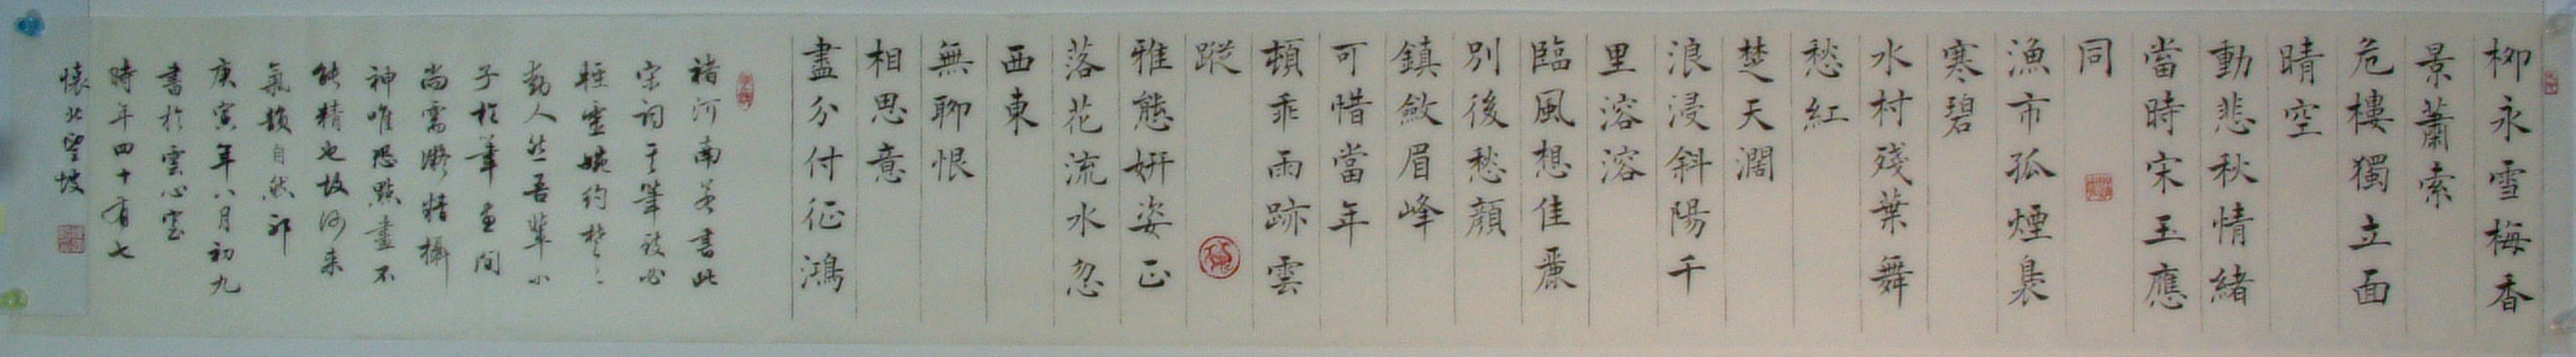 柳永雪梅香
景蕭索
危樓獨立面
晴空
動悲秋情緒
當時宋玉應
同
漁市孤煙裊
寒碧
水村殘葉舞
愁紅
楚天濶
浪浸斜陽千
里溶溶
臨風想佳麗
別後愁顏
鎮斂眉峰
可惜當年
頓乖雨跡雲
蹤
雅態妍姿正
落花流水忽
西東
無聊恨
相思意
盡分付征鴻
褚河南若書此
宋詞其筆ech必
輕靈婉約楚楚
動人然吾輩小
子於筆画間
尚需凝精攝
神唯恐點畫不
能精也故何来
氣韻自然邪
庚寅年八月初九
書於雲心室
時年四十有七
懷北望坡